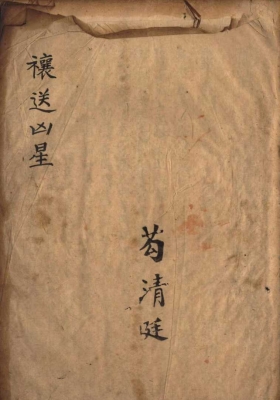 禳送凶星
苟清廷